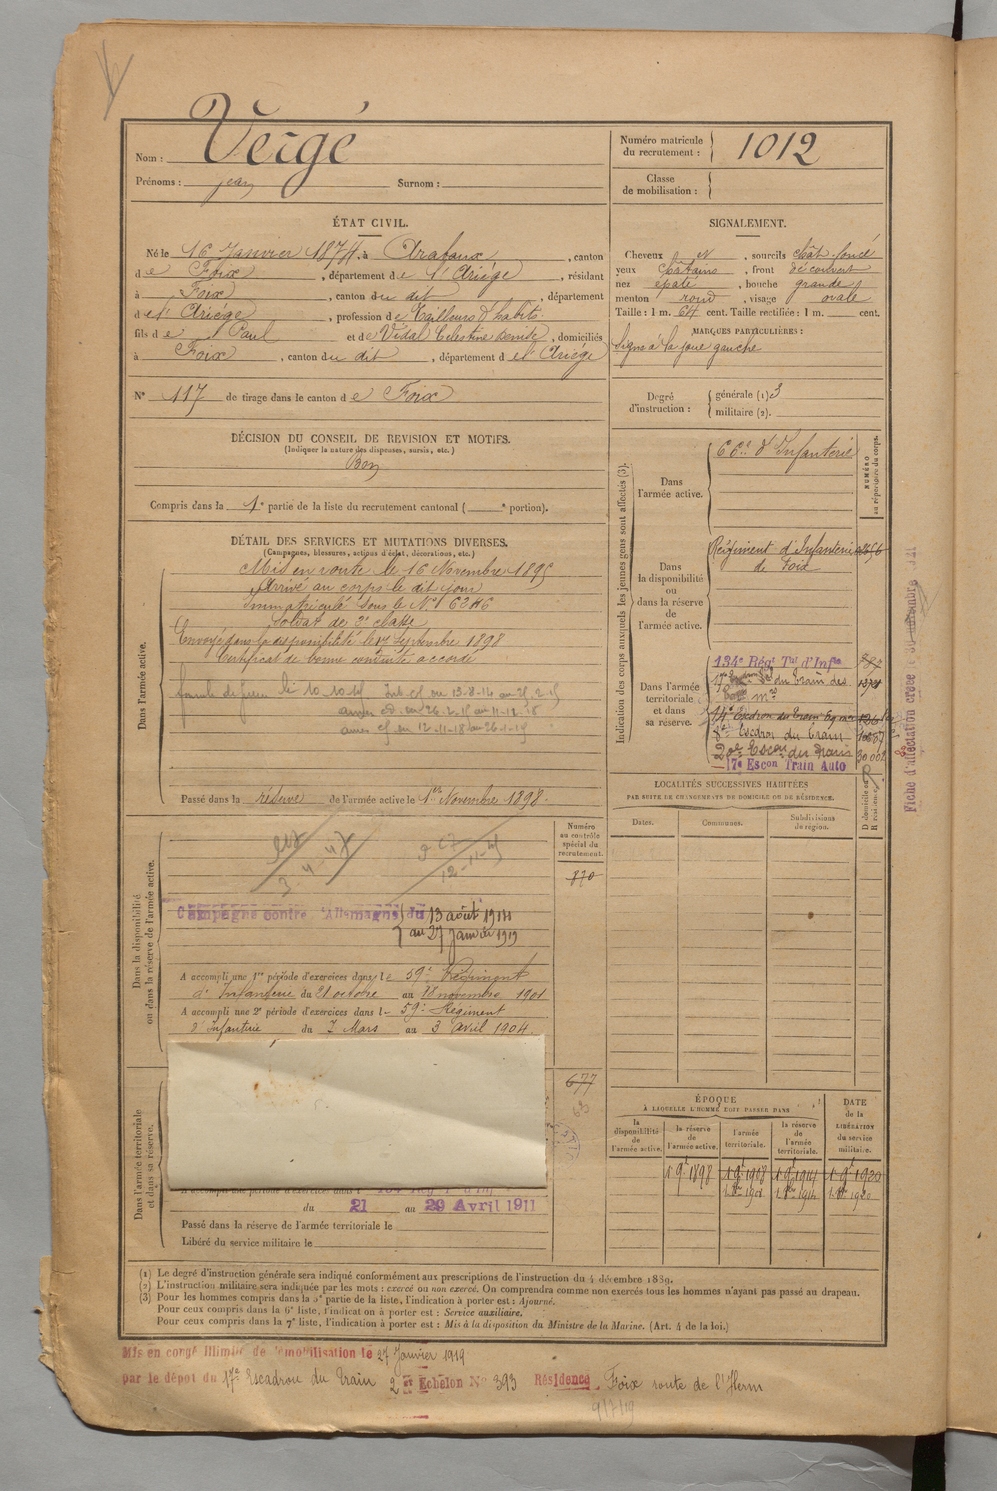 Nom : Vergé
Prénoms : jean Surnom :
Numéro matricule du recrutement : 1012
Classe de mobilisation :
ÉTAT CIVIL.
Né le 16 Janvier 1874, à Arabaux, canton
de Foix, département de l'Ariége, résidant
à Foix, canton du dit, département
de l'Ariége, profession de Tailleurs d'habits
fils de Paul et de Vidal Celestine Denise, domiciliés
à Foix, canton du dit, département de l'Ariége
N° 117 de tirage dans le canton de Foix
SIGNALEMENT.
Cheveux et, sourcils chât. foncé
yeux châtains, front découvert
nez épaté, bouche grande
menton rond, visage ovale
Taille : 1 m. 64 cent. Taille rectifiée : 1 m. cent.
MARQUES PARTICULIÈRES :
Signe à la joue gauche
Degré d'instruction : générale (1) 3
militaire (2).
DÉCISION DU CONSEIL DE REVISION ET MOTIFS.
(Indiquer la nature des dispenses, sursis, etc.)
Bon
Compris dans la 1e partie de la liste du recrutement cantonal ( e portion).
DÉTAIL DES SERVICES ET MUTATIONS DIVERSES.
(Campagnes, blessures, actions d'éclat, décorations, etc.)
Dans l'armée active.
Mis en route le 16 Novembre 1895
Arrivé au corps le dit jour
Immatriculé sous le N° 6246
Soldat de 2e classe
Envoyé dans la disponibilité le 17 Septembre 1898
Certificat de bonne conduite accordé
Passé dans la réserve de l'armée active le 1er Novembre 1898.
Indication des corps auxquels les jeunes gens sont affectés (3).
NUMÉRO au répertoire du corps.
Dans l'armée active.
Régiment d'Infanterie de Foix
Dans la disponibilité ou dans la réserve de l'armée active.
Dans l'armée territoriale et dans sa réserve.
134e Régt Tal d'Infie
8e Escdron du Train
20e Escon du Train 30002
17e Escon Train Auto
Fiche d'affectation créée le
LOCALITÉS SUCCESSIVES HABITÉES
PAR SUITE DE CHANGEMENTS DE DOMICILE OU DE RÉSIDENCE.
Dates.
Communes.
Subdivisions de région.
D domicile ou R résidence.
Dans la disponibilité ou dans la réserve de l'armée active.
Numéro au contrôle spécial du recrutement.
870
Campagne contre l'Allemagne du 13 août 1914
au 27 janvier 1919
A accompli une 1re période d'exercices dans le 59e Régiment
d'Infanterie du 21 octobre au 18 novembre 1901
A accompli une 2e période d'exercices dans le 59e Régiment
d'Infanterie du 7 Mars au 3 avril 1904.
677
Dans l'armée territoriale et dans sa réserve.
du 21 au 29 Avril 1911
Passé dans la réserve de l'armée territoriale le
Libéré du service militaire le
ÉPOQUE
À LAQUELLE L'HOMME DOIT PASSER DANS
la disponibilité de l'armée active.
la réserve de l'armée active.
l'armée territoriale.
la réserve de l'armée territoriale.
DATE de la LIBÉRATION du service militaire.
(1) Le degré d'instruction générale sera indiqué conformément aux prescriptions de l'instruction du 4 décembre 1889.
(2) L'instruction militaire sera indiquée par les mots : exercé ou non exercé. On comprendra comme non exercés tous les hommes n'ayant pas passé au drapeau.
(3) Pour les hommes compris dans la 5e partie de la liste, l'indication à porter est : Ajourné.
Pour ceux compris dans la 6e liste, l'indication à porter est : Service auxiliaire.
Pour ceux compris dans la 7e liste, l'indication à porter est : Mis à la disposition du Ministre de la Marine. (Art. 4 de la loi.)
Mis en congé illimité de démobilisation le 27 Janvier 1919
par le dépot du 17e Escadron du Train 2e Echelon N° 393 Résidence Foix route de l'Herm
9/7/19